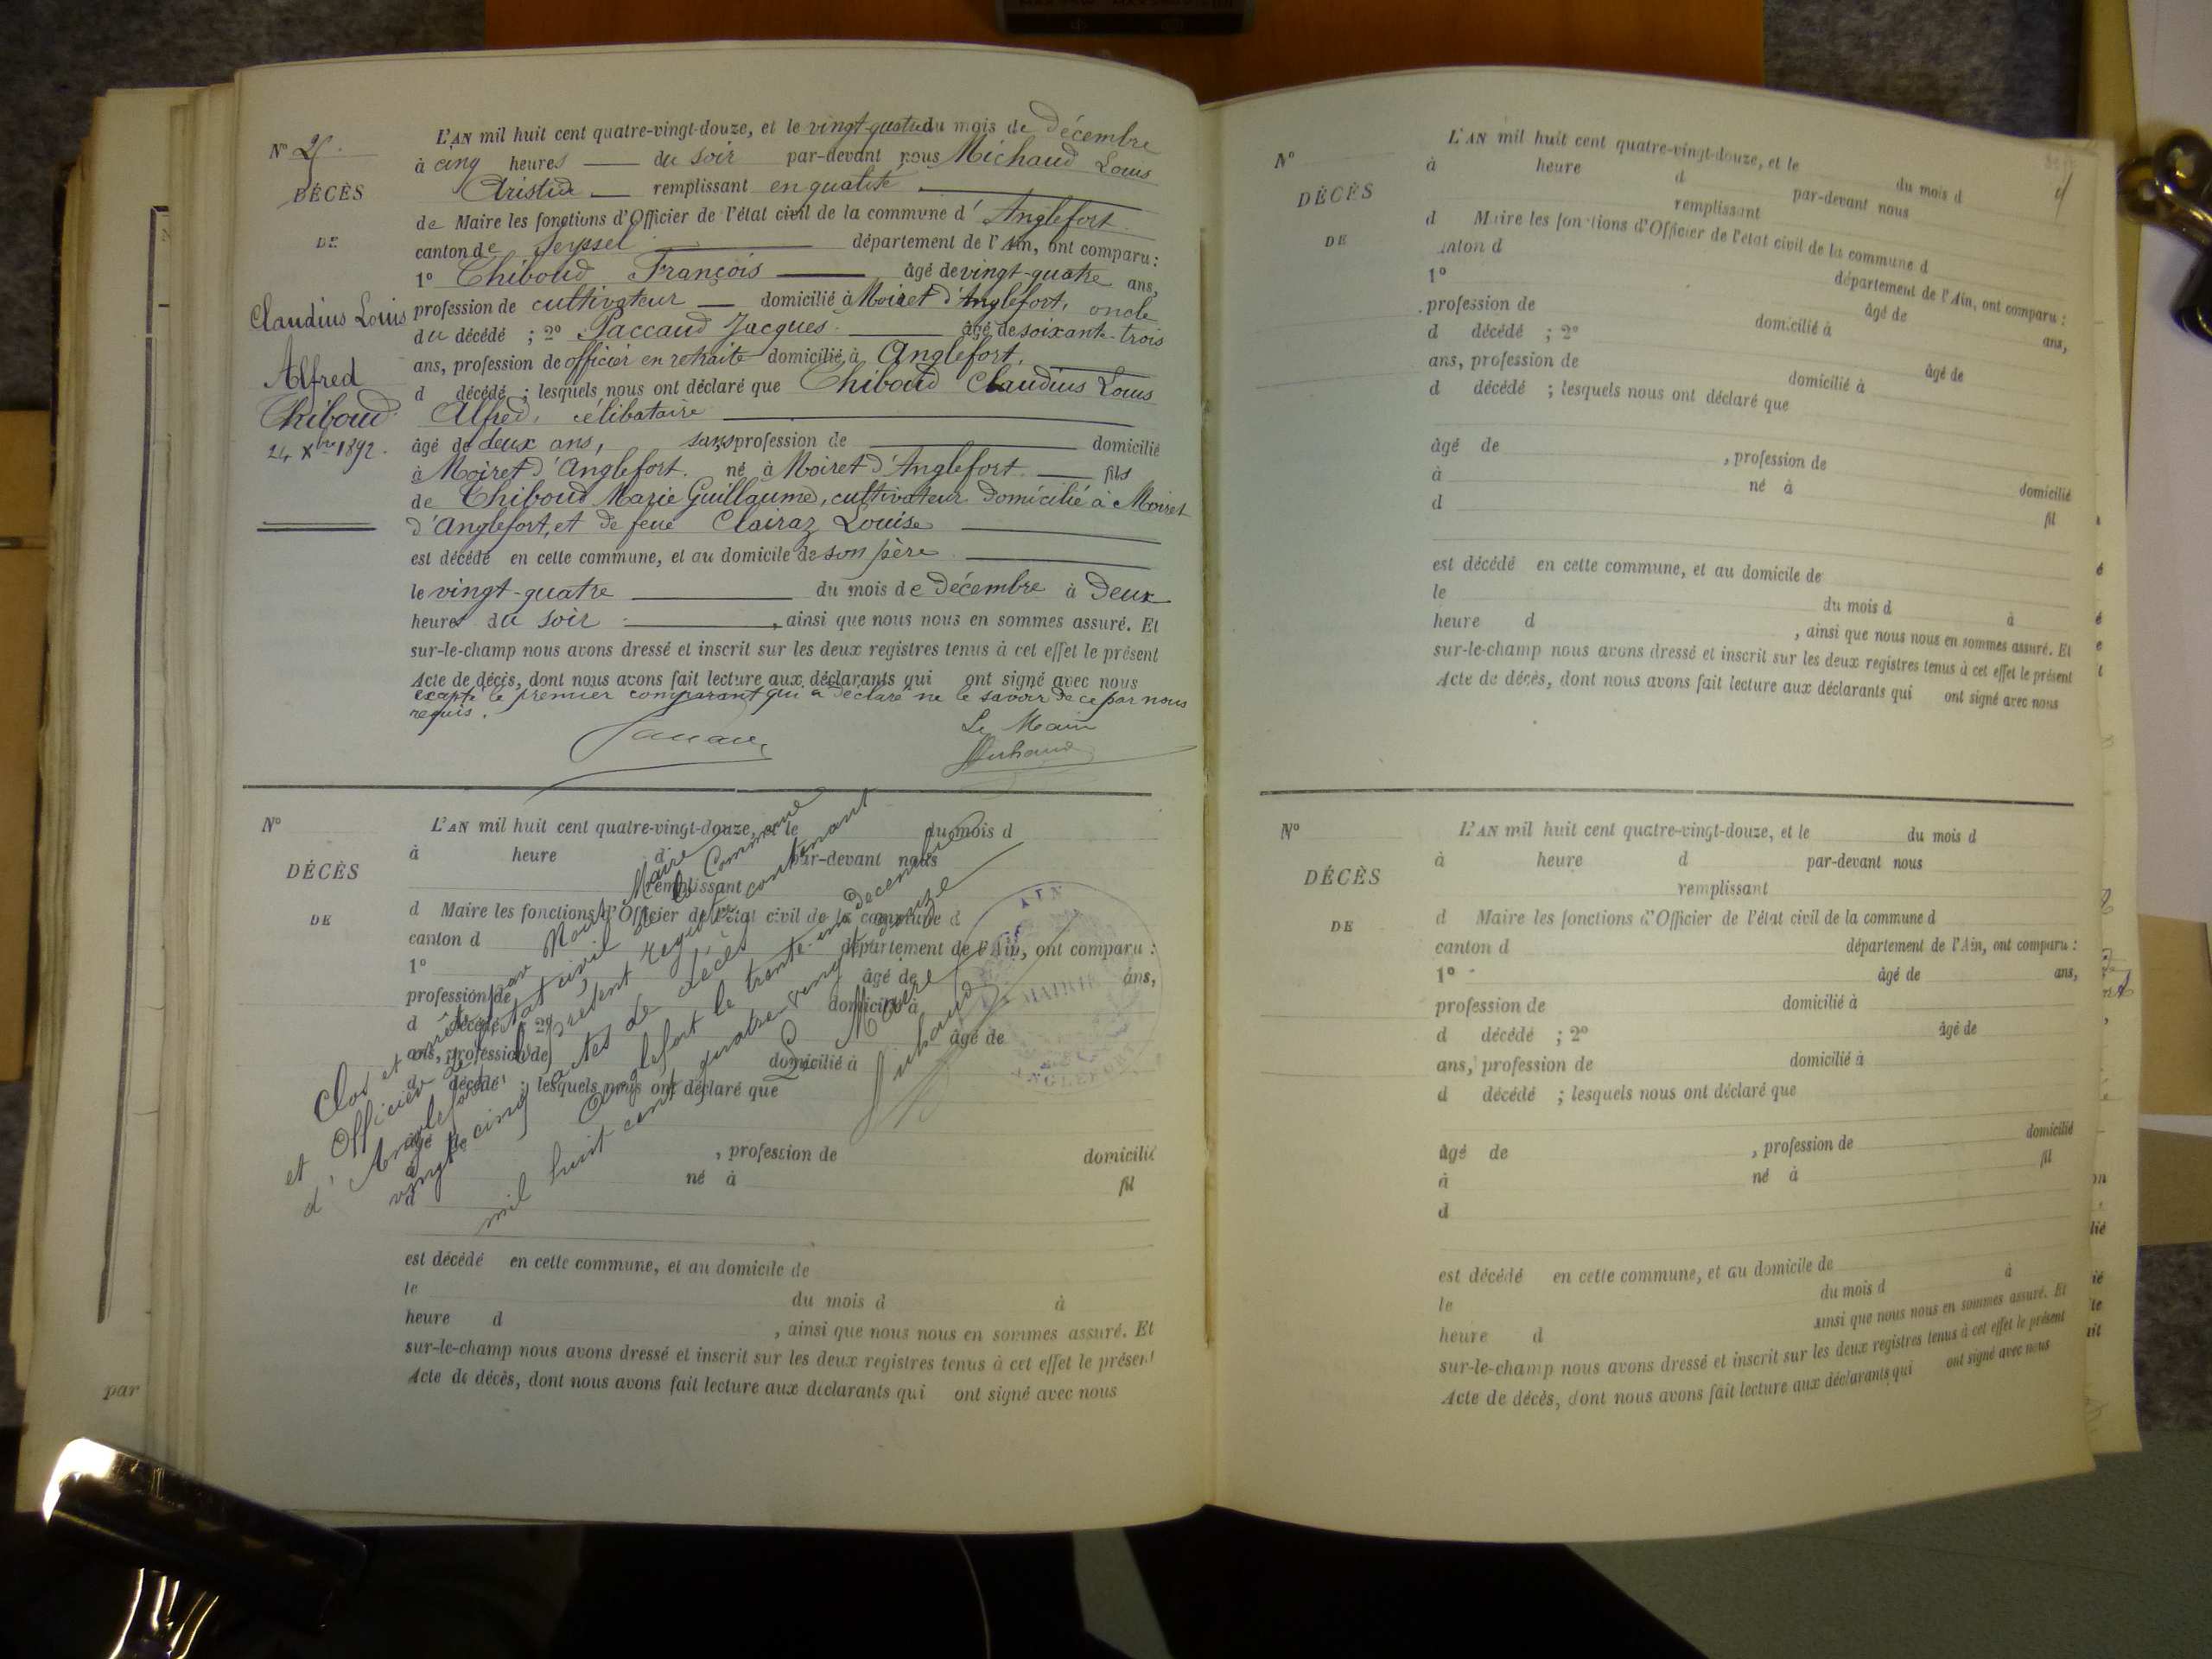 N° 25.
DÉCÈS
DE
Claudius Louis
Alfred
Thiboud
24 Xbre 1892.
L'AN mil huit cent quatre-vingt-douze, et le vingt-quatre du mois de Décembre
à cinq heures du soir par-devant nous Michaud Louis
Aristide remplissant en qualité
de Maire les fonctions d'Officier de l'état civil de la commune d'Anglefort
canton de Seyssel département de l'Ain, ont comparu :
1° Thiboud François âgé de vingt-quatre ans,
profession de cultivateur domicilié à Moiret d'Anglefort, oncle
du décédé ; 2° Paccaud Jacques âgé de soixante-trois
ans, profession de officier en retraite domicilié à Anglefort,
d décédé ; lesquels nous ont déclaré que Thiboud Claudius Louis
Alfred, célibataire
âgé de deux ans, sans profession de domicilié
à Moiret d'Anglefort. né à Moiret d'Anglefort fils
de Thiboud Marie Guillaume, cultivateur domicilié à Moiret
d'Anglefort, et de feue Clairaz Louise
est décédé en cette commune, et au domicile de son père
le vingt-quatre du mois de Décembre à Deux
heures du soir , ainsi que nous nous en sommes assuré. Et
sur-le-champ nous avons dressé et inscrit sur les deux registres tenus à cet effet le présent
Acte de décès, dont nous avons fait lecture aux déclarants qui ont signé avec nous
excepté le premier comparant qui a déclaré ne le savoir de ce par nous
requis.
Le Maire
Michaud
N°
DÉCÈS
DE
L'AN mil huit cent quatre-vingt-douze, et le du mois d
à heure d par-devant nous
remplissant
d Maire les fonctions d'Officier de l'état civil de la commune d
canton d département de l'Ain, ont comparu :
1° âgé de ans,
profession de domicilié à
d décédé ; 2° âgé de
ans, profession de domicilié à
d décédé ; lesquels nous ont déclaré que
âgé de , profession de domicilié
à né à fil
d
est décédé en cette commune, et au domicile de
le du mois d à
heure d , ainsi que nous nous en sommes assuré. Et
sur-le-champ nous avons dressé et inscrit sur les deux registres tenus à cet effet le présent
Acte de décès, dont nous avons fait lecture aux déclarants qui ont signé avec nous
Clos et arrêté par Nous, Maire
et Officier de l'état civil de la Commune
d'Anglefort, le présent registre contenant
vingt-cinq actes de décès
Anglefort le trente-un décembre
mil huit cent quatre-vingt-douze
Le Maire
Michaud
AIN
MAIRIE
ANGLEFORT
par
N°
DÉCÈS
DE
L'AN mil huit cent quatre-vingt-douze, et le du mois d
à heure d par-devant nous
remplissant
d Maire les fonctions d'Officier de l'état civil de la commune d
canton d département de l'Ain, ont comparu :
1° âgé de ans,
profession de domicilié à
d décédé ; 2° âgé de
ans, profession de domicilié à
d décédé ; lesquels nous ont déclaré que
âgé de , profession de domicilié
à né à fil
d
est décédé en cette commune, et au domicile de
le du mois d à
heure d , ainsi que nous nous en sommes assuré. Et
sur-le-champ nous avons dressé et inscrit sur les deux registres tenus à cet effet le présent
Acte de décès, dont nous avons fait lecture aux déclarants qui ont signé avec nous
N°
DÉCÈS
DE
L'AN mil huit cent quatre-vingt-douze, et le du mois d
à heure d par-devant nous
remplissant
d Maire les fonctions d'Officier de l'état civil de la commune d
canton d département de l'Ain, ont comparu :
1° âgé de ans,
profession de domicilié à
d décédé ; 2° âgé de
ans, profession de domicilié à
d décédé ; lesquels nous ont déclaré que
âgé de , profession de domicilié
à né à fil
d
est décédé en cette commune, et au domicile de
le du mois d à
heure d ainsi que nous nous en sommes assuré. Et
sur-le-champ nous avons dressé et inscrit sur les deux registres tenus à cet effet le présent
Acte de décès, dont nous avons fait lecture aux déclarants qui ont signé avec nous